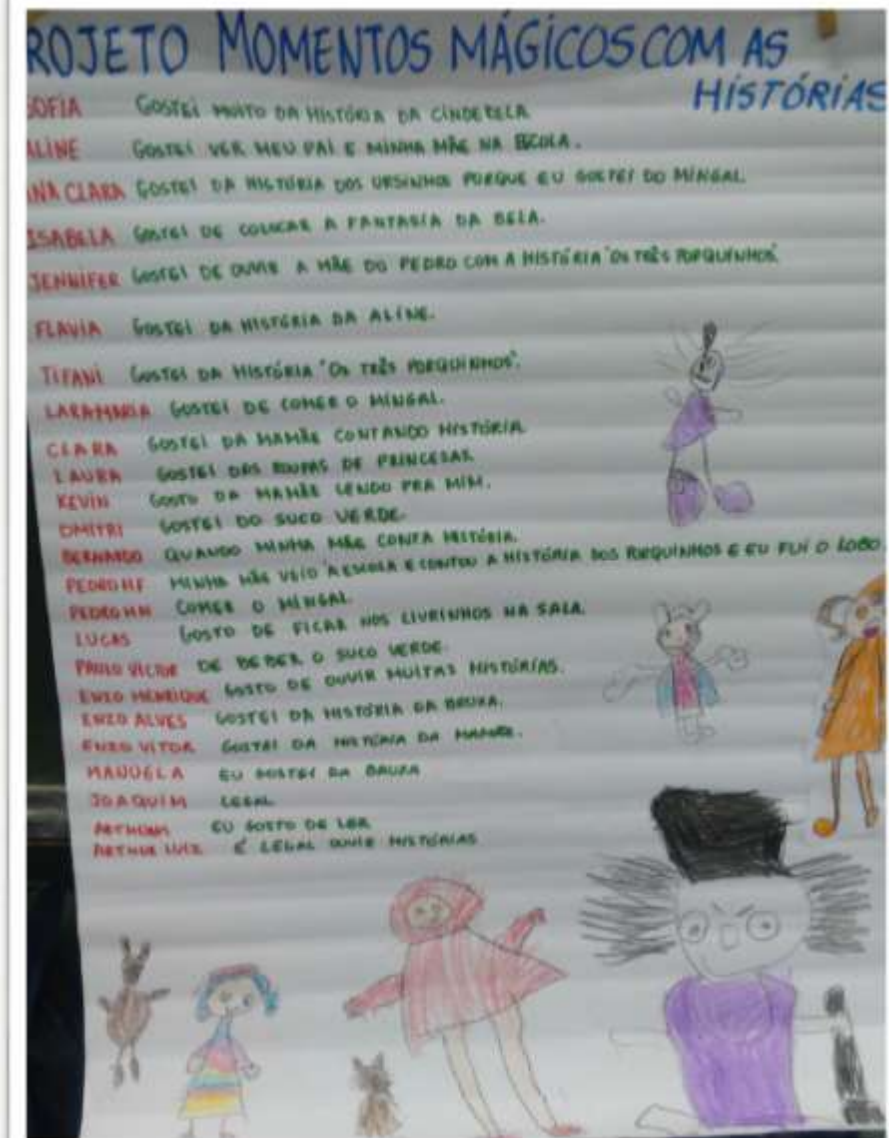 ROJETO MOMENTOS MÁGICOS COM AS
HISTÓRIAS
SOFIA GOSTEI MUITO DA HISTÓRIA DA CINDERELA
ALINE GOSTEI VER MEU PAI E MINHA MÃE NA ESCOLA.
ANA CLARA GOSTEI DA HISTÓRIA DOS URSINHOS PORQUE EU GOSTEI DO MINGAL.
ISABELLA GOSTEI DE COLOCAR A FANTASIA DA BELA.
JENNIFER GOSTEI DE OUVIR A MÃE DO PEDRO COM A HISTÓRIA "OS TRÊS PORQUINHOS".
FLAVIA GOSTEI DA HISTÓRIA DA ALINE.
TIFANI GOSTEI DA HISTÓRIA "OS TRÊS PORQUINHOS".
LARA MARIA GOSTEI DE COMER O MINGAL.
CLARA GOSTEI DA MAMÃE CONTANDO HISTÓRIA
LAURA GOSTEI DAS ROUPAS DE PRINCESAS
KEVIN GOSTO DA MAMÃE LENDO PRA MIM.
DMITRI GOSTEI DO SUCO VERDE.
BERNARDO QUANDO MINHA MÃE CONTA HISTÓRIA.
PEDRO HF MINHA MÃE VEIO A ESCOLA E CONTOU A HISTÓRIA DOS PORQUINHOS E EU FUI O LOBO
PEDRO COMER O MINGAL.
LUCAS GOSTO DE FICAR NOS LIVRINHOS NA SALA.
PAULO VICTOR DE BEBER O SUCO VERDE.
ENZO HENRIQUE GOSTO DE OUVIR MUITAS HISTÓRIAS.
ENZO ALVES GOSTEI DA HISTÓRIA DA BRUXA.
ENZO VITOR GOSTEI DA HISTÓRIA DA MAMÃE.
MANUELA EU GOSTEI DA BRUXA
JOAQUIM LEGAL
ARTHUR EU GOSTO DE LER
ARTHUR LUIZ É LEGAL OUVIR HISTÓRIAS